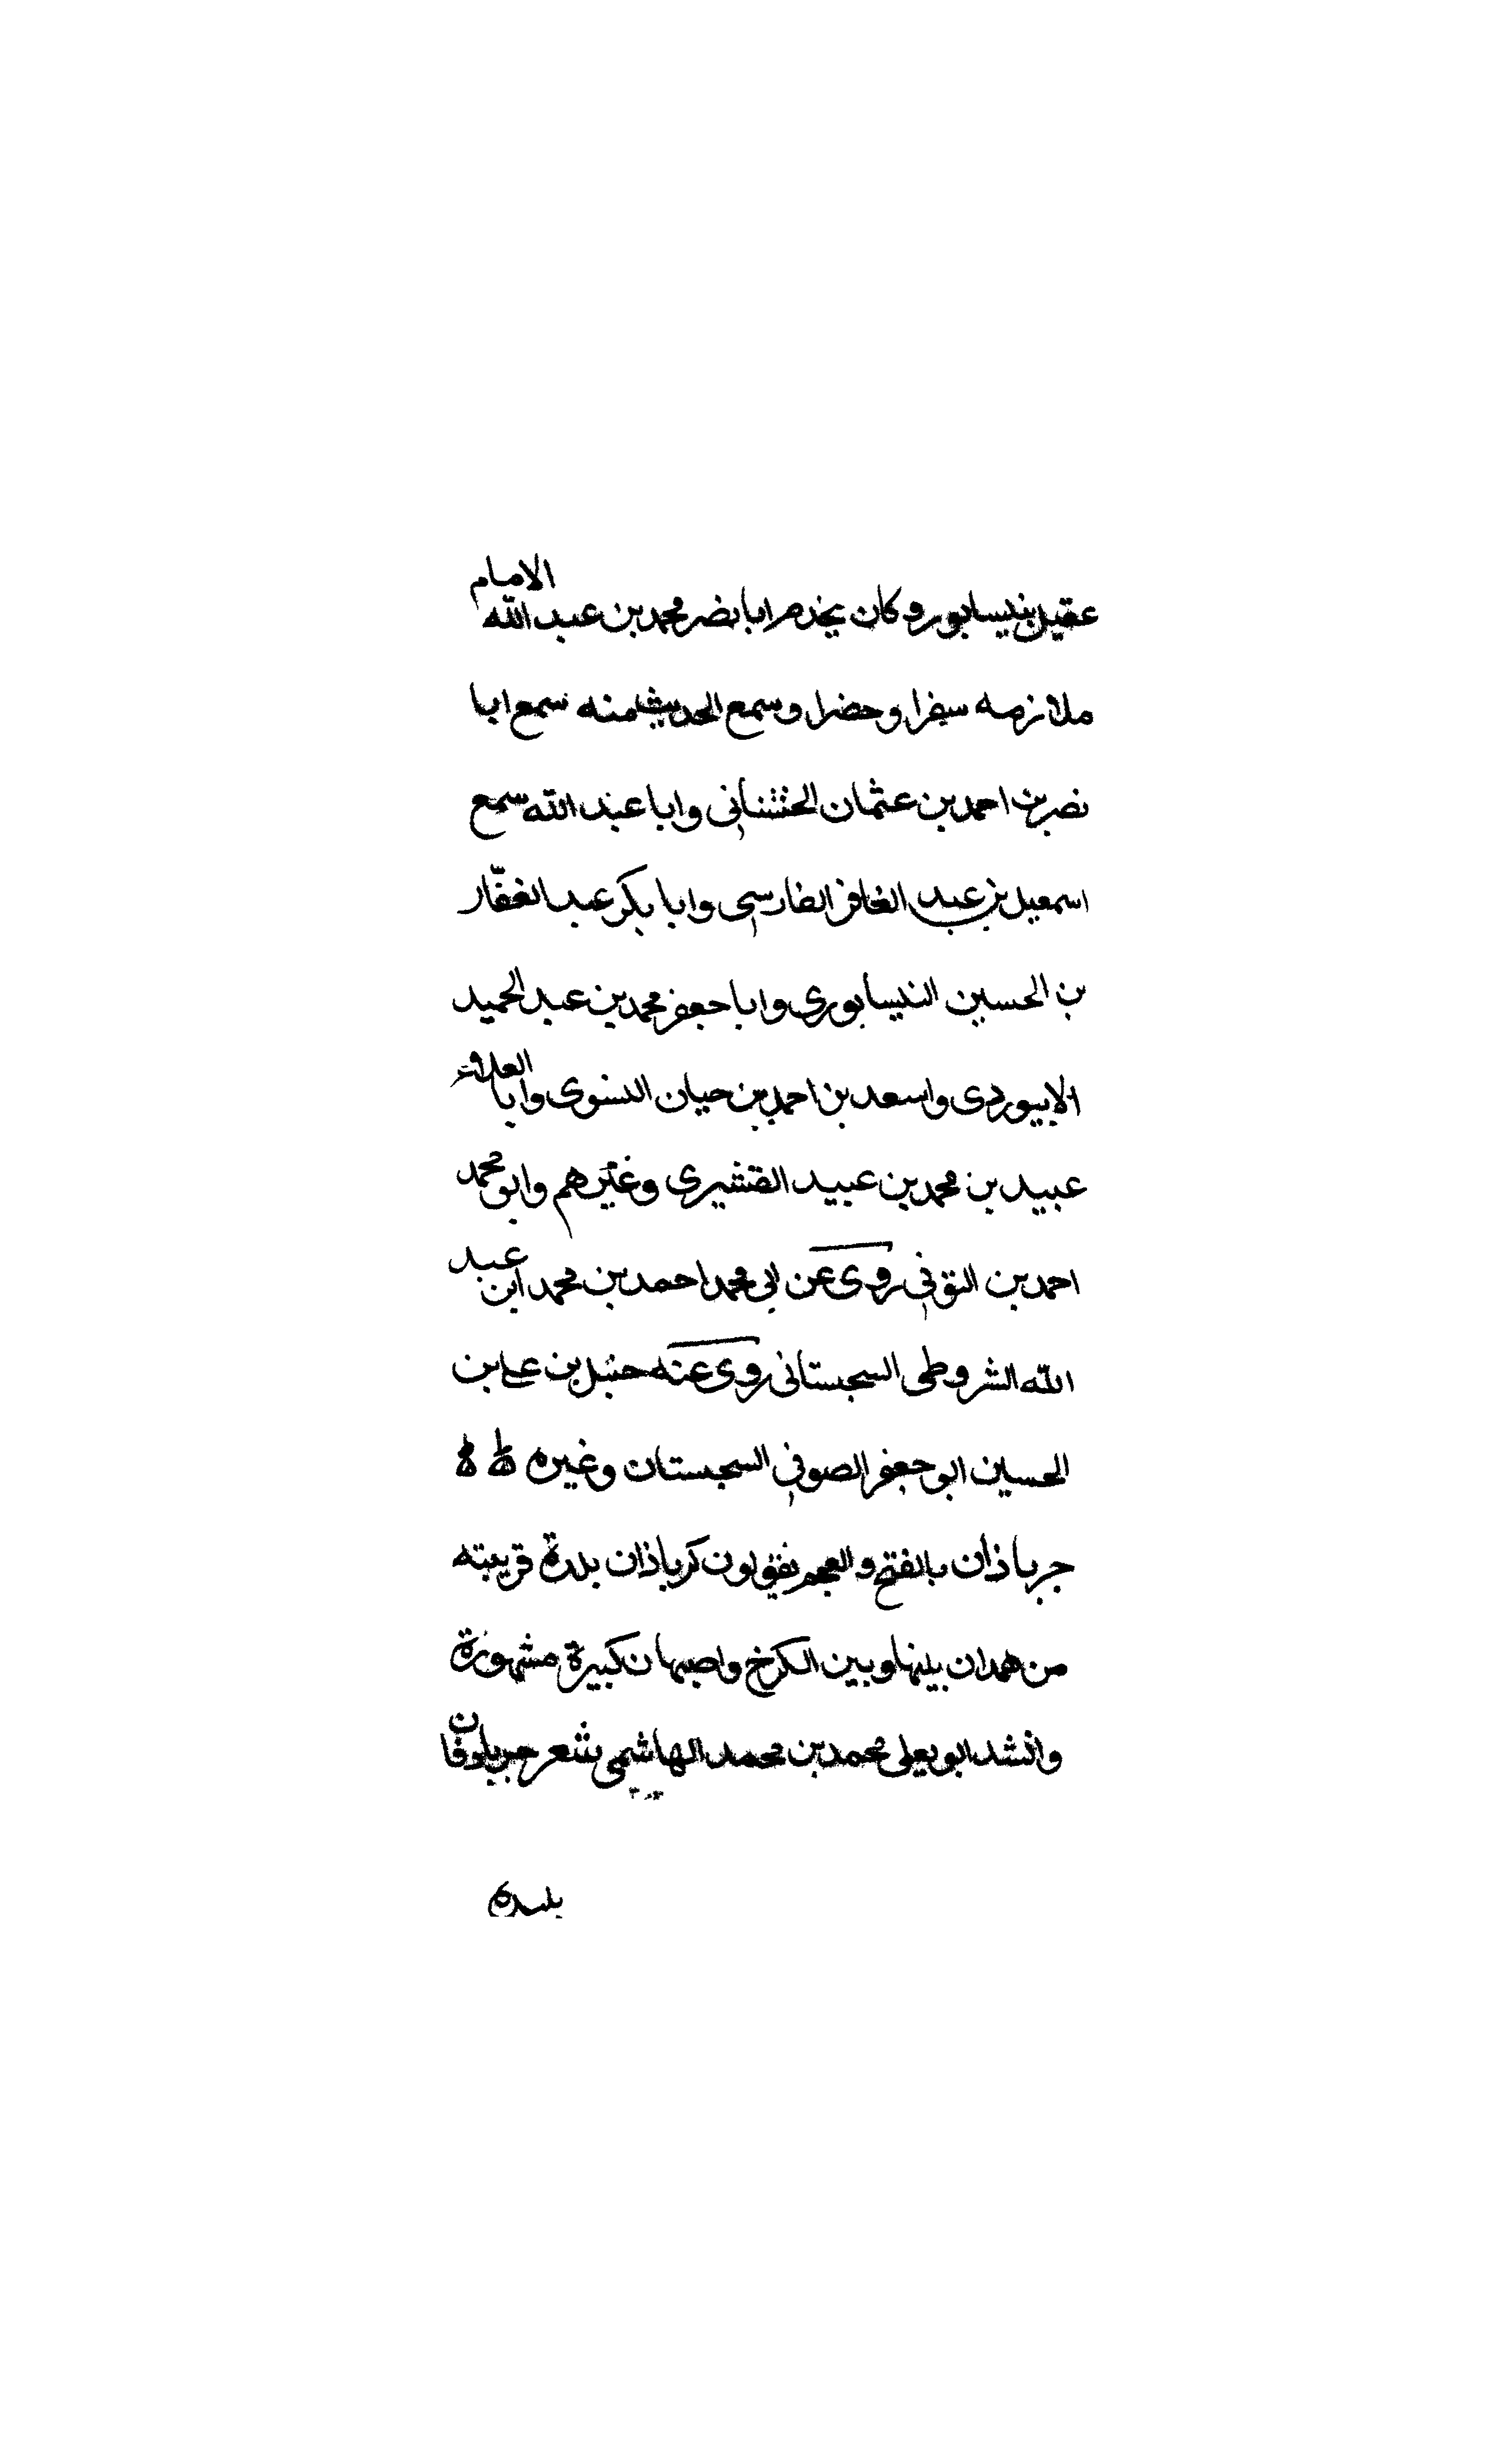 عقيل بنيسابور وكان يخدم ابا نصر محمد بن عبد الله الامام
ملازمه سفرا وحضرا وسمع الحديث منه سمع ابا
نصر بن احمد بن عثمان الخشنانى وابا عبد الله سمع
اسمعيل بن عبد الغافر الفارسى وابا بكر عبد الغفّار
بن الحسين النيسابورى وابا جعفر محمد بن عبد الحميد
الابيوردى واسعد بن احمد بن حيان النسوى وابا العلاء
عبيد بن محمد بن عبيد القشيرى وغيرهم وابو محمد
احمد بن التونى روى عن ابى محمد احمد بن محمد ابن عبد
الله الشروطى السجستانى روى عنه حنبل بن على بن
الحسين ابو جعفر الصوفى السجستان وغيره
جرباذان بالفتح والعجم يقولون كرباذان بلدة قريبته
من همدان بينها وبين الكرخ واصبهان كبيرة مشهورة
وانشد ابو يعلى محمد بن محمد الهاشمى شعر جرباذقان
بلدة